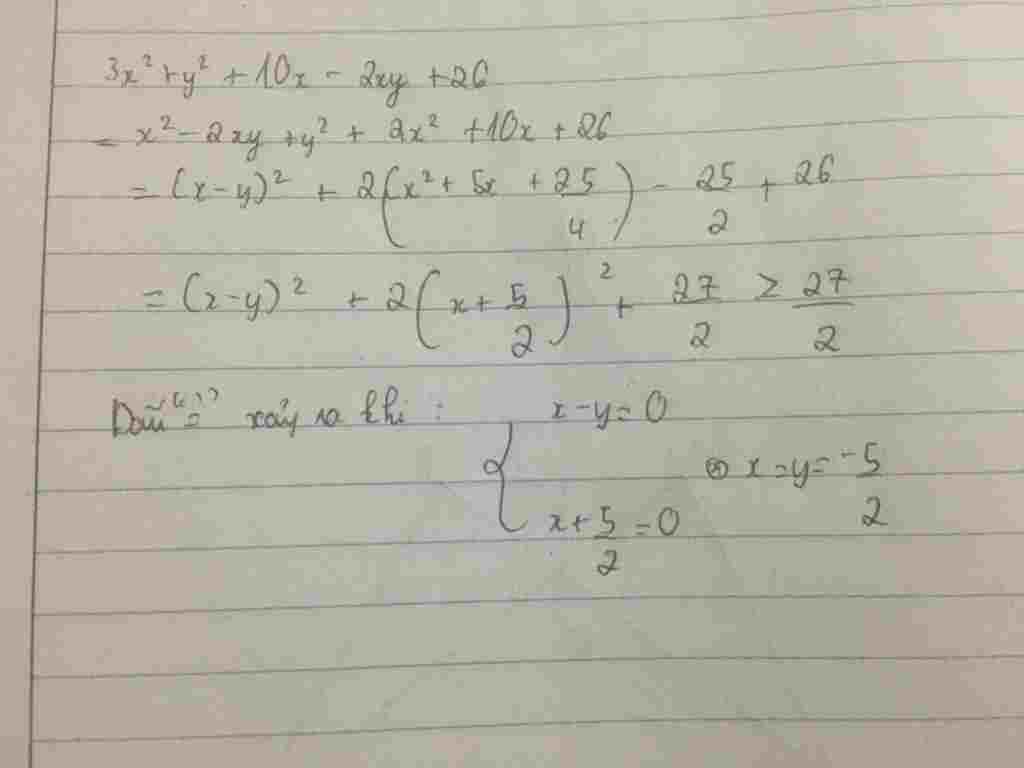 3x² + y² + 10x - 2xy + 26
= x² - 2xy + y² + 2x² + 10x + 26
= (x-y)² + 2(x² + 5x + 25/4) - 25/2 + 26
= (x-y)² + 2(x + 5/2)² + 27/2 ≥ 27/2
Dấu "=" xảy ra khi : { x-y=0
x + 5/2 = 0 ⇔ x=y= -5/2